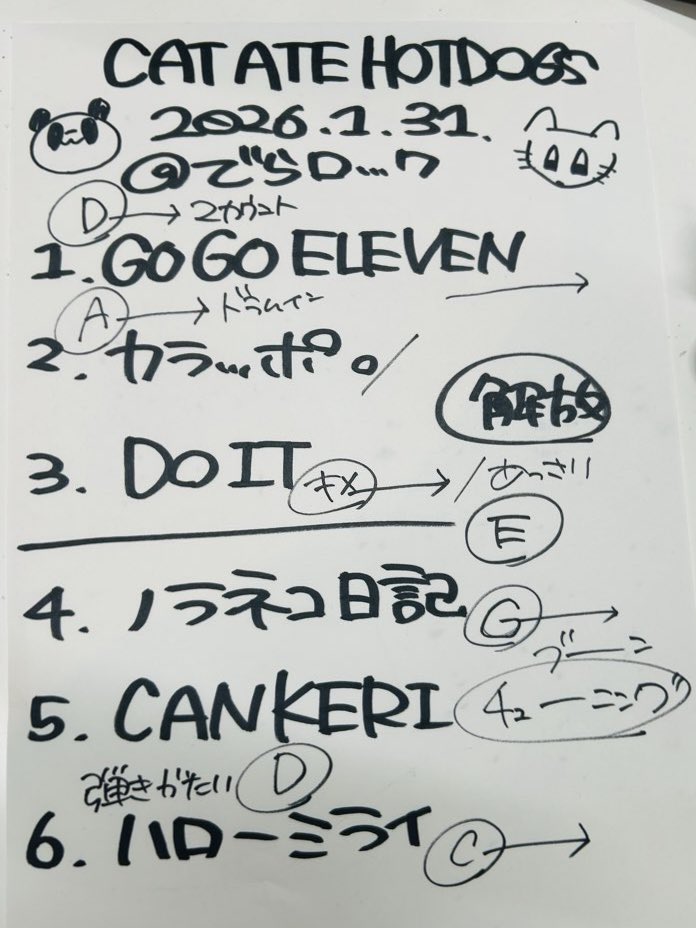 CAT ATE HOTDOGS
2026.1.31.
@でらロック
D → 2カウント
1. GO GO ELEVEN →
A → ドラムイン
2. カラッポ。/
解放
3. DO IT キメ → / あっさり
E
4. ノラネコ日記 G →
ブーン
5. CANKERI チューニング
弾きがたり D
6. ハローミライ C →